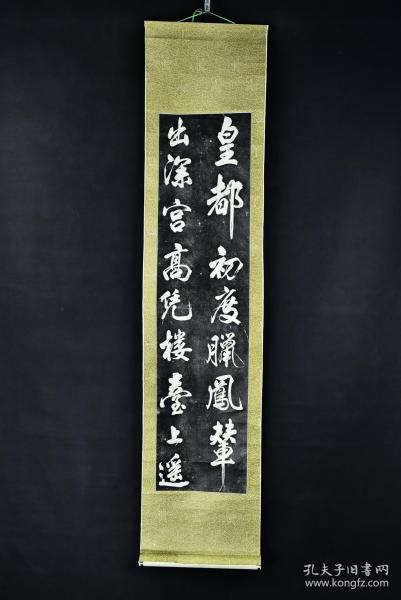 皇都初度臘鳳輦
出深宮高凭樓臺上遥
孔夫子旧书网
www.kongfz.com